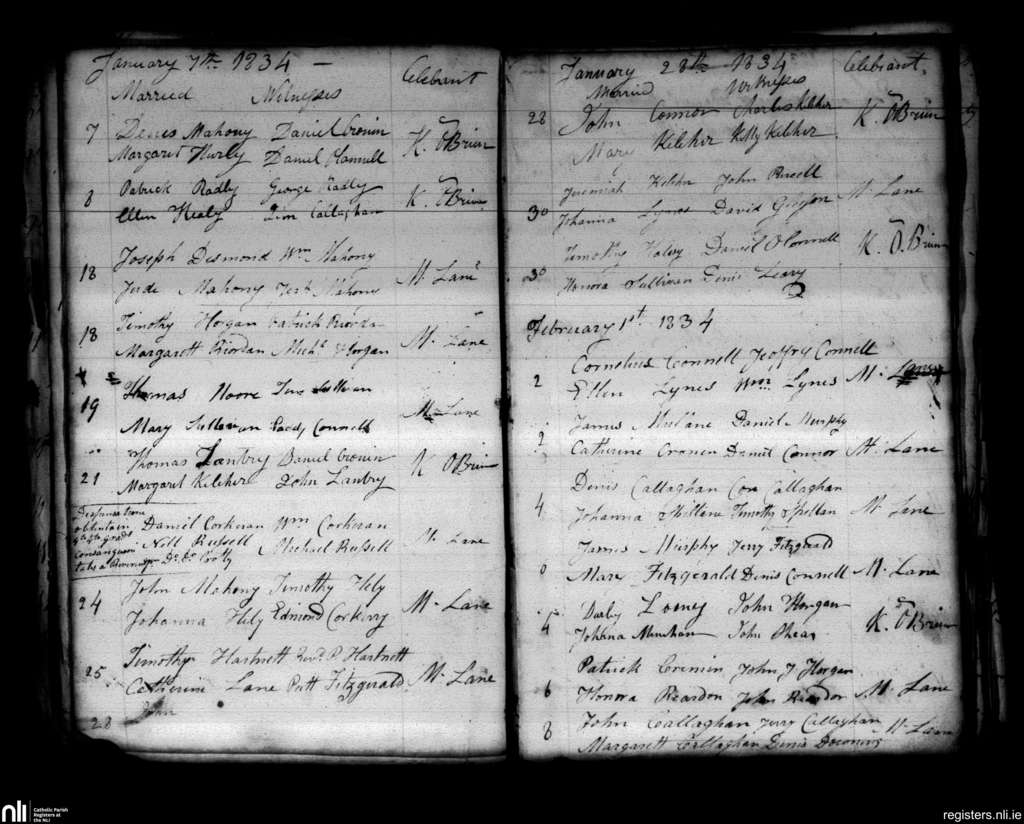 January 7th 1834 — Celebrant
Married Witnesses
7 Denis Mahony Daniel Cronin
Margaret Hurly Daniel Connell K. O'Brien
8 Patrick Radly George Radly
Ellen Healy Tim Callaghan K. O'Brien
Joseph Desmond Wm Mahony
18 Jude Mahony Jert Mahony M. Lane
Timothy Horgan Patrick Riordn
18 Margarett Riordan Michl Horgan M. Lane
Thomas Moore Tim Sullivan
19 Mary Sullivan Paddy Connell M. Lane
Thomas Lanbry Daniel Cronin
21 Margaret Kelcher John Lanbry K O'Brien
Dispensatione
obtenta in
4to 4to gradu
consanguini
Daniel Corkeran Wm Corkeran
Nell Russell Michael Russell M. Lane
John Mahony Timothy Hely
24 Johanna Hely Edmond Corkerry M. Lane
Timothy Hartnett Revd P. Hartnett
25 Catherine Lane Patt Fitzgerald M. Lane
John
28
January 28th 1834 Celebrant.
Married Witnesses
28 John Connor Charles Kelcher
Mary Kelcher Kitty Kelcher K. O'Brien
Jeremiah Kelcher John Russell
30 Johanna Lynes David M. Lane
Timothy Foley Daniel O Connell
30 Honora Sullivan Denis Leary K. O'Brien
February 1st. 1834
Cornelius Connell Jeoffry Connell
2 Ellen Lynes Wm Lynes M. Lane
James Mullane Daniel Murphy
2 Catherine Cronen Daniel Connor M. Lane
Denis Callaghan Con Callaghan
4 Johanna Timothy M. Lane
James Murphy Jerry Fitzgerald
Mary Fitzgerald Denis Connell M. Lane
Darby Looney John Horgan
4 Johanna Minehan John Shea K. O'Brien
Patrick Cremin John J Horgan
6 Honora Reardon John Reardon M. Lane
John Callaghan Jerry Callaghan
8 Margarett Callaghan Denis Downing M. Lane
nli
Catholic Parish
Registers at
the NLI
registers.nli.ie